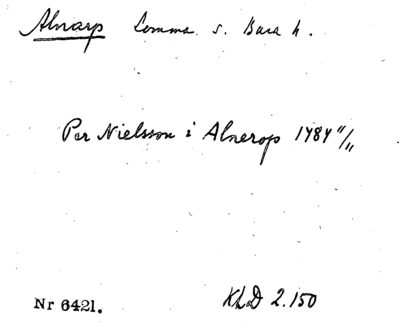 Alnarp Lomma s. Bara h.
Per Nielsson i Alnerop 1484 11/11
Nr 6421.
KLD 2.150